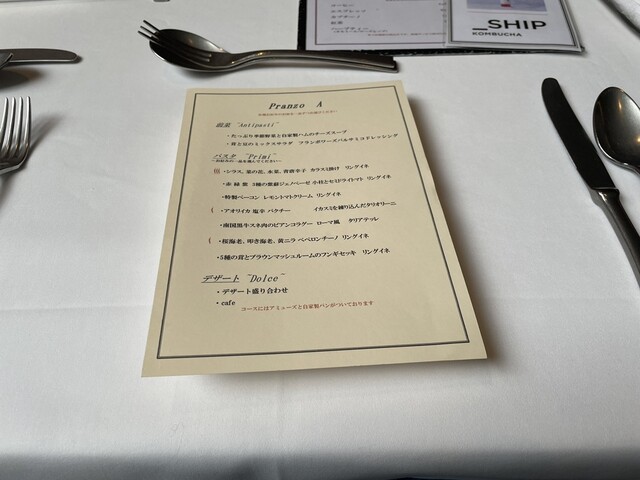 コーヒー
エスプレッソ
カプチーノ
紅茶
ハーブティー
_SHIP
KOMBUCHA
Pranzo A
前菜 "Antipasti"
・たっぷり季節野菜と自家製ハムのチーズスープ
・苺と豆のミックスサラダ フランボワーズバルサミコドレッシング
パスタ "Primi"
・シラス、菜の花、水菜、青唐辛子 カラスミ掛け リングイネ
・特製ベーコン レモントマトクリーム リングイネ
・アオリイカ 塩辛 パクチー イカスミを練り込んだタリオリーニ
・南国黒牛スネ肉のビアンコラグー ローマ風 タリアテッレ
・桜海老、叩き海老、黄ニラ ペペロンチーノ リングイネ
・5種の茸とブラウンマッシュルームのフンギセッキ リングイネ
デザート "Dolce"
・デザート盛り合わせ
・cafe
コースにはアミューズと自家製パンがついております